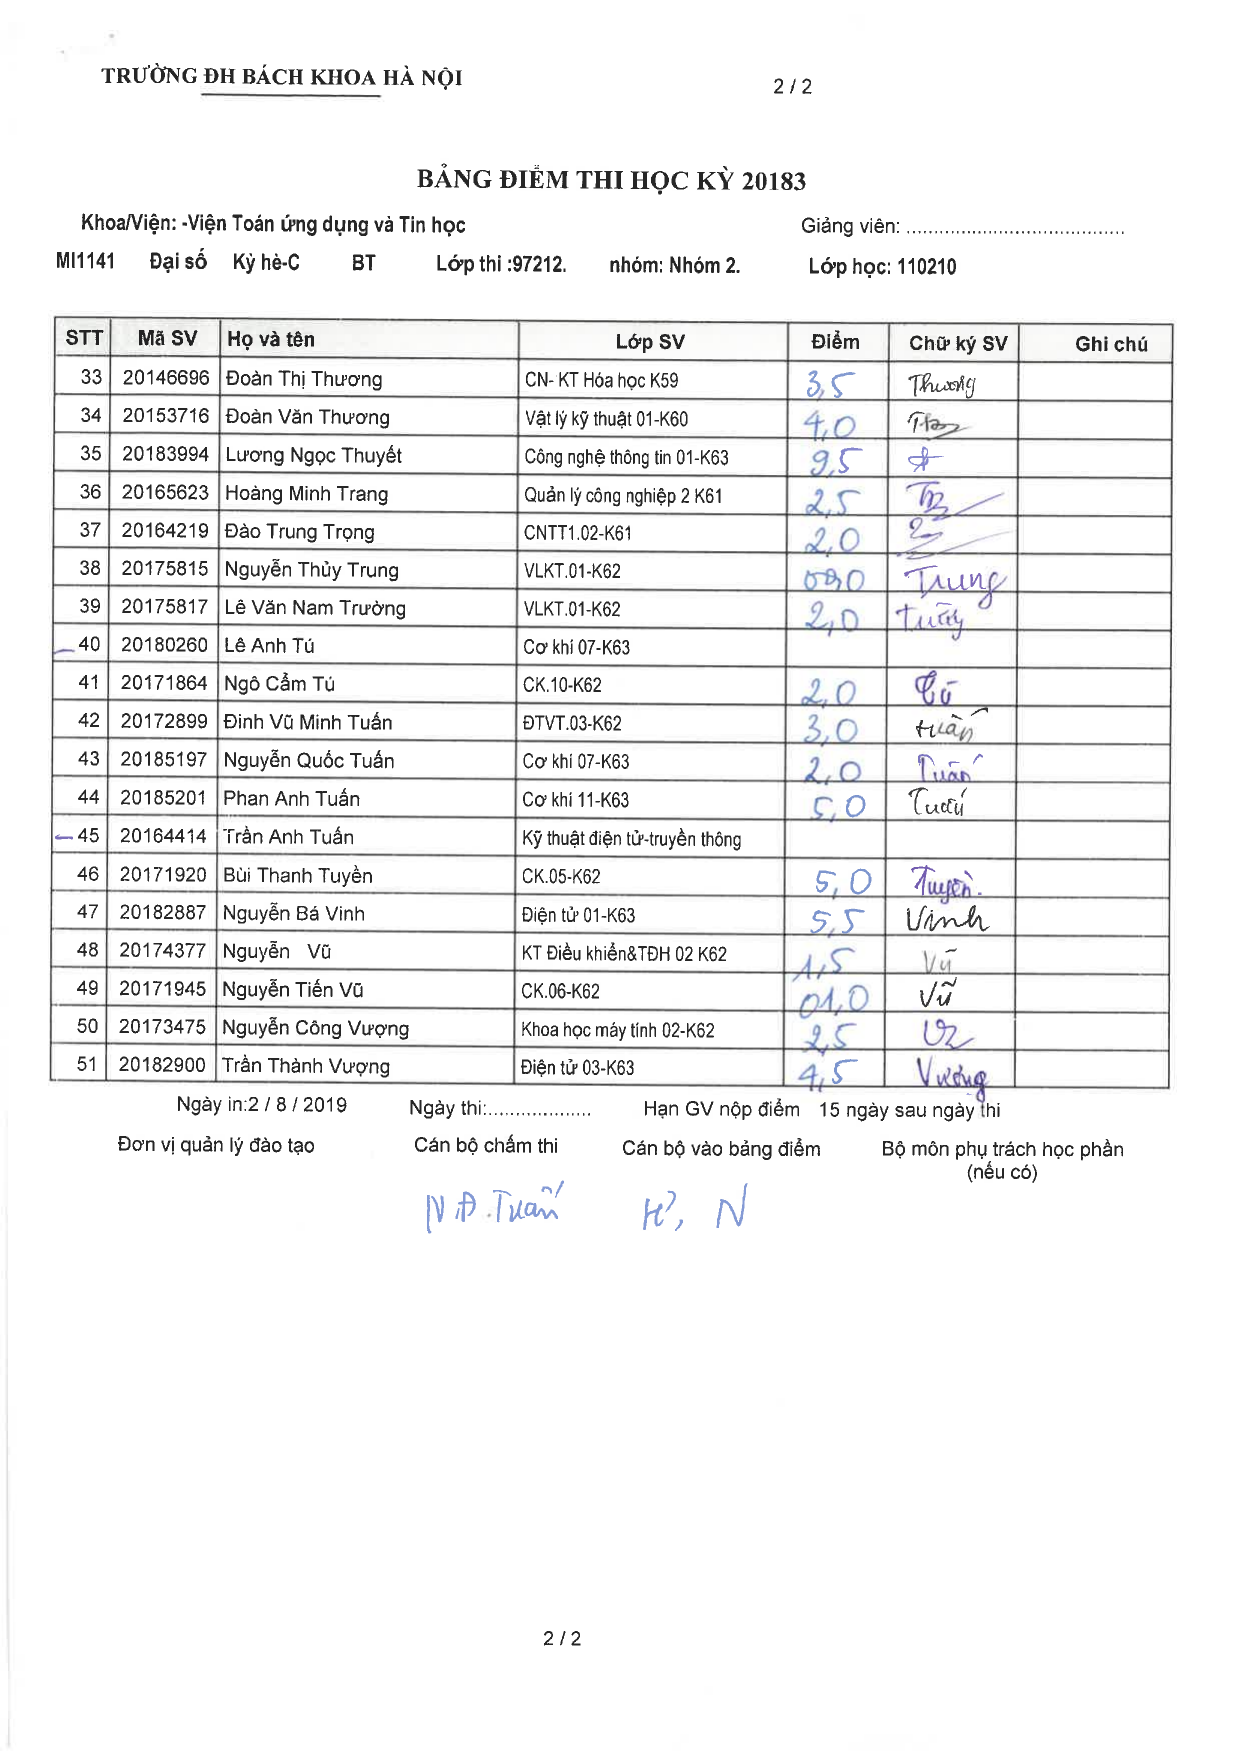 TRƯỜNG ĐH BÁCH KHOA HÀ NỘI 2 / 2
BẢNG ĐIỂM THI HỌC KỲ 20183
Khoa/Viện: -Viện Toán ứng dụng và Tin học Giảng viên: ........................................
MI1141 Đại số Kỳ hè-C BT Lớp thi :97212. nhóm: Nhóm 2. Lớp học: 110210
STT Mã SV Họ và tên Lớp SV Điểm Chữ ký SV Ghi chú
33 20146696 Đoàn Thị Thương CN- KT Hóa học K59 3,5 Thương
34 20153716 Đoàn Văn Thương Vật lý kỹ thuật 01-K60 4,0
35 20183994 Lương Ngọc Thuyết Công nghệ thông tin 01-K63 9,5
36 20165623 Hoàng Minh Trang Quản lý công nghiệp 2 K61 2,5
37 20164219 Đào Trung Trọng CNTT1.02-K61 2,0
38 20175815 Nguyễn Thủy Trung VLKT.01-K62 Trung
39 20175817 Lê Văn Nam Trường VLKT.01-K62 2,0
40 20180260 Lê Anh Tú Cơ khí 07-K63
41 20171864 Ngô Cẩm Tú CK.10-K62 2,0 Tú
42 20172899 Đinh Vũ Minh Tuấn ĐTVT.03-K62 3,0 tuấn
43 20185197 Nguyễn Quốc Tuấn Cơ khí 07-K63 2,0 Tuấn
44 20185201 Phan Anh Tuấn Cơ khí 11-K63 5,0 Tuấn
45 20164414 Trần Anh Tuấn Kỹ thuật điện tử-truyền thông
46 20171920 Bùi Thanh Tuyền CK.05-K62 5,0 Tuyền.
47 20182887 Nguyễn Bá Vinh Điện tử 01-K63 5,5 Vinh
48 20174377 Nguyễn Vũ KT Điều khiển&TĐH 02 K62 1,5 Vũ
49 20171945 Nguyễn Tiến Vũ CK.06-K62 01,0 Vũ
50 20173475 Nguyễn Công Vượng Khoa học máy tính 02-K62 2,5
51 20182900 Trần Thành Vượng Điện tử 03-K63 4,5 Vượng
Ngày in:2 / 8 / 2019 Ngày thi:................... Hạn GV nộp điểm 15 ngày sau ngày thi
Đơn vị quản lý đào tạo Cán bộ chấm thi Cán bộ vào bảng điểm Bộ môn phụ trách học phần
(nếu có)
N Đ.Tuấn H², N
2 / 2